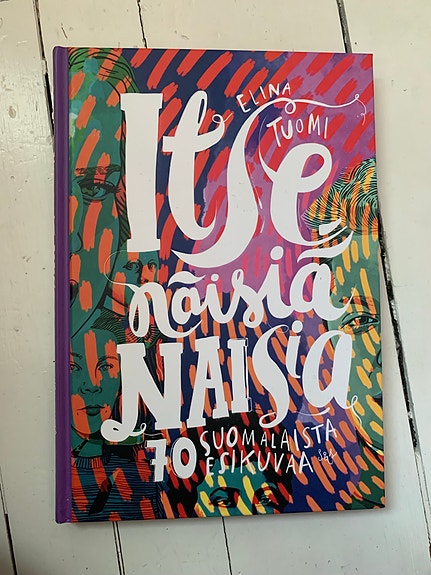 ELINA
TUOMI
ITSE
NÄISIÄ
NAISIA
70 SUOMALAISTA
ESIKUVAA